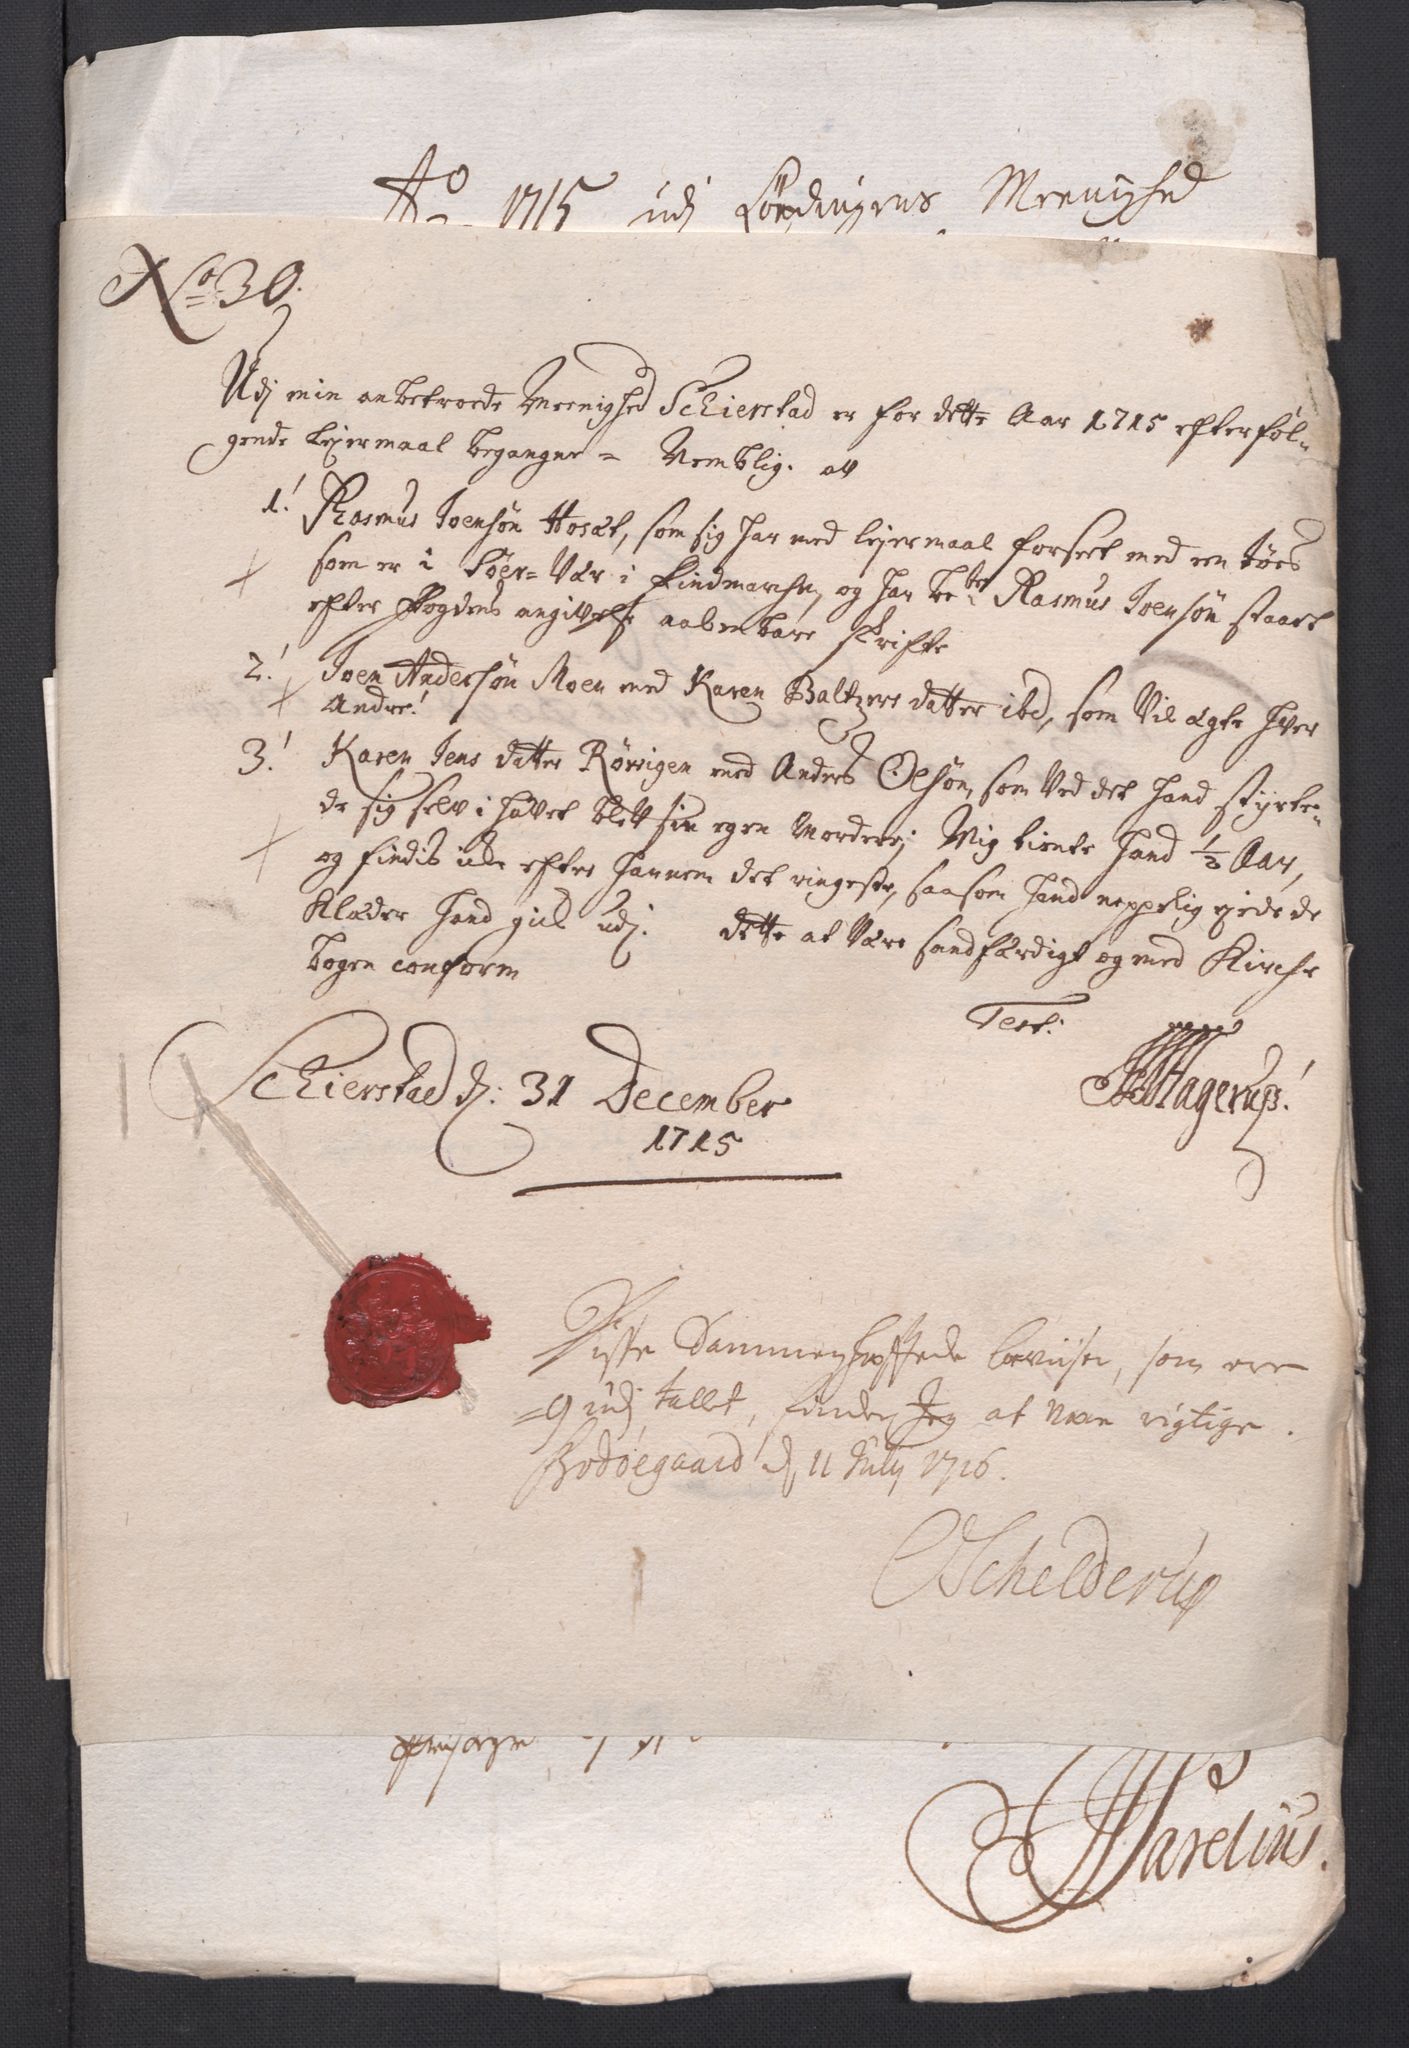 Ao 1715 udj Lødingens Meenighed
No 30.
Udj min anbetroede Meenighed Schierstad er for dette Aar 1715 efterføl-
gende Lejermaal begangne = Nemblig. at
1. Rasmus Joensøn Hosæt, som sig har med lejermaal forseet med een tøes
som er i Søer-Vær i Findmarchen, og har bete Rasmus Joensøn staaet
efter Fogdens angivelse aabenbare skrifte
2. Joen Andersøn Moen med Karen Baltzers datter ibd, som Vil ægte hver
Andre!
3. Karen Jens datter Rørvigen med Anders Olsøn, som Ved det hand styrte-
de sig selv i hafvet blev sin egen Morder; Mig tiente hand 1/2 Aar,
og findis icke efter hannem det ringeste, saasom hand neppelig ejede de
Klæder hand gick udj. dette at Være sandfærdigt og med Kirche
bogen conform
Test:
Schierstad d: 31 December
1715
Hagerup!
Disse Sammenhæftede beviiser, som ere
=9 udj tallet, finder Jeg at være rigtige.
Bodøegaard d, 11 Julij 1716.
Schelderup
Parelius.